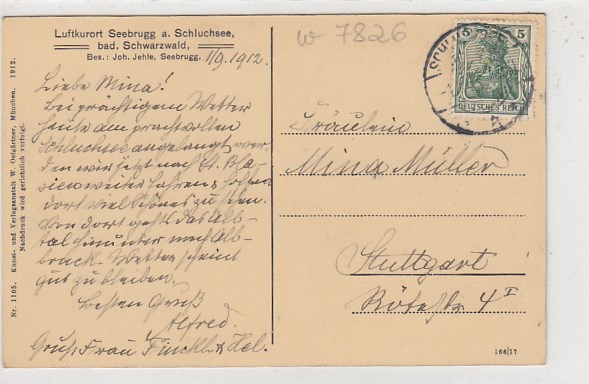 Luftkurort Seebrugg a. Schluchsee,
bad. Schwarzwald,
Bes.: Joh. Jehle, Seebrugg.
1/9. 1912.
Liebe Mina!
Bei prächtigem Wetter
heute am prachtvollen
Schluchsee angelangt, wer-
den wir jetzt nach St. Bla-
sien weiter fahren & sollen
dort viel Schönes zu sehen.
Von dort gehts das Alb-
tal hinunter nach Alb-
bruck. Wetter scheint
gut zu bleiben.
Besten Gruß
Alfred.
Gruß Frau Finckh & Hel.
Nr. 1105. Kunst- und Verlagsanstalt W. Ostgärtner, München. 1912.
Nachdruck wird gerichtlich verfolgt.
w 7826
5
DEUTSCHES REICH
Fräulein
Mina Müller
Stuttgart
Rötestr. 4 I
166/17